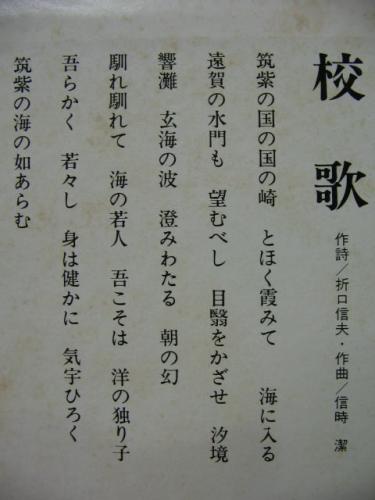 校歌
作詩／折口信夫・作曲／信時　潔
筑紫の国の国の崎　とほく霞みて　海に入る
遠賀の水門も　望むべし　目翳をかざせ　汐境
響灘　玄海の波　澄みわたる　朝の幻
馴れ馴れて　海の若人　吾こそは　洋の独り子
吾らかく　若々し　身は健かに　気宇ひろく
筑紫の海の如あらむ